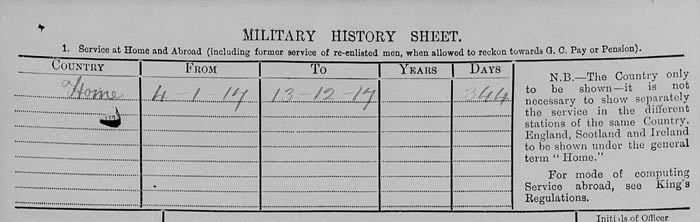 MILITARY HISTORY SHEET.
1. Service at Home and Abroad (including former service of re-enlisted men, when allowed to reckon towards G. C. Pay or Pension).
COUNTRY FROM TO YEARS DAYS
Home 4-1-17 13-12-17 344
N.B.—The Country only
to be shown—it is not
necessary to show separately
the service in the different
stations of the same Country.
England, Scotland and Ireland
to be shown under the general
term "Home."
For mode of computing
Service abroad, see King's
Regulations.
Initials of Officer